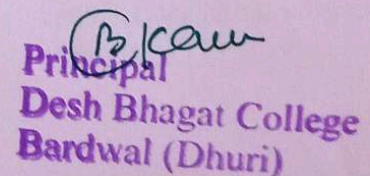 B. Kaur
Principal
Desh Bhagat College
Bardwal (Dhuri)